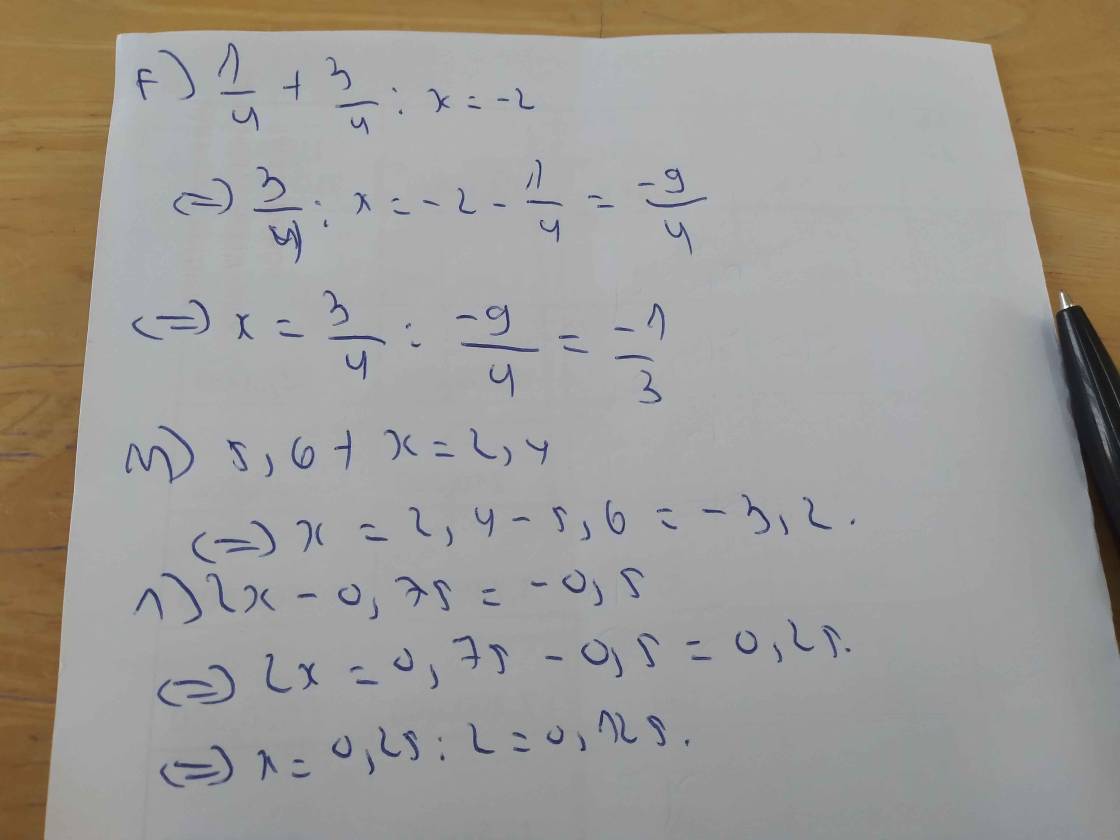 F) 1/4 + 3/4 : x = -2
<=> 3/4 : x = -2 - 1/4 = -9/4
<=> x = 3/4 : -9/4 = -1/3
m) 5,6 + x = 2,4
<=> x = 2,4 - 5,6 = -3,2.
1) 2x - 0,75 = -0,5
<=> 2x = 0,75 - 0,5 = 0,25.
<=> x = 0,25 : 2 = 0,125.